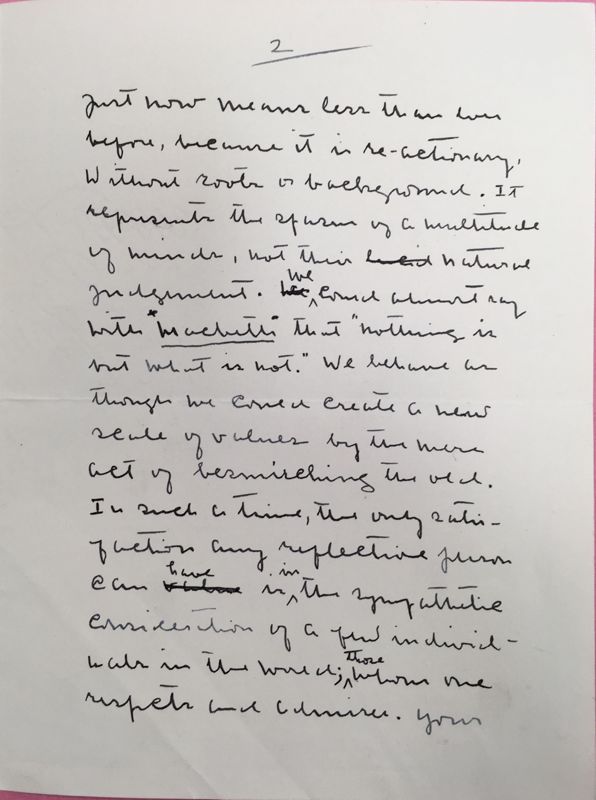 2
Just now means less than ever
before, because it is re-actionary,
Without roots or background. It
represents the spasm of a multitude
of minds, not their natural
judgment. We could almost say
with "Macbeth" that "nothing is
but what is not." We behave as
though we could create a new
scale of values by the mere
act of besmirching the old.
In such a time, the only satis-
faction any reflective person
can have is in the sympathetic
consideration of a few individ-
uals in the world; those whom one
respects and admires. Your